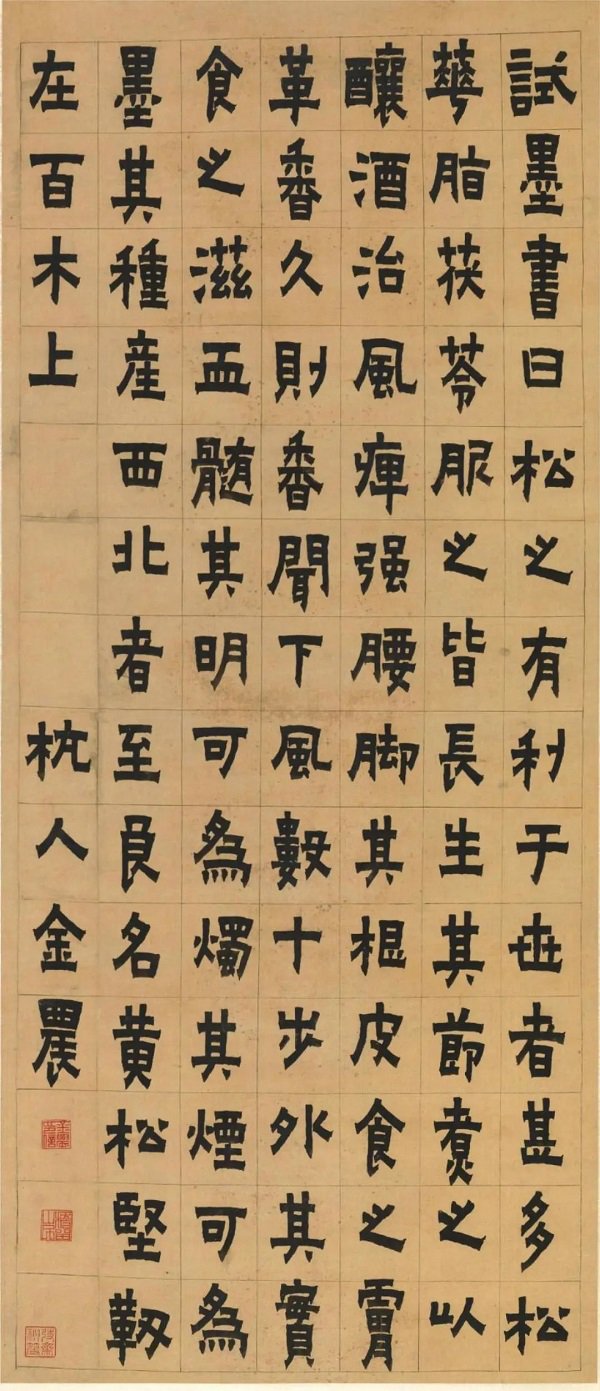 試墨書曰松之有利于世者甚多松
華脂茯苓服之皆長生其節煮之以
釀酒治風痺强腰脚其根皮食之膚
革香久則香聞下風數十步外其實
食之滋血髓其明可為燭其煙可為
墨其種産西北者至良名黄松堅靭
在百木上
杭人金農